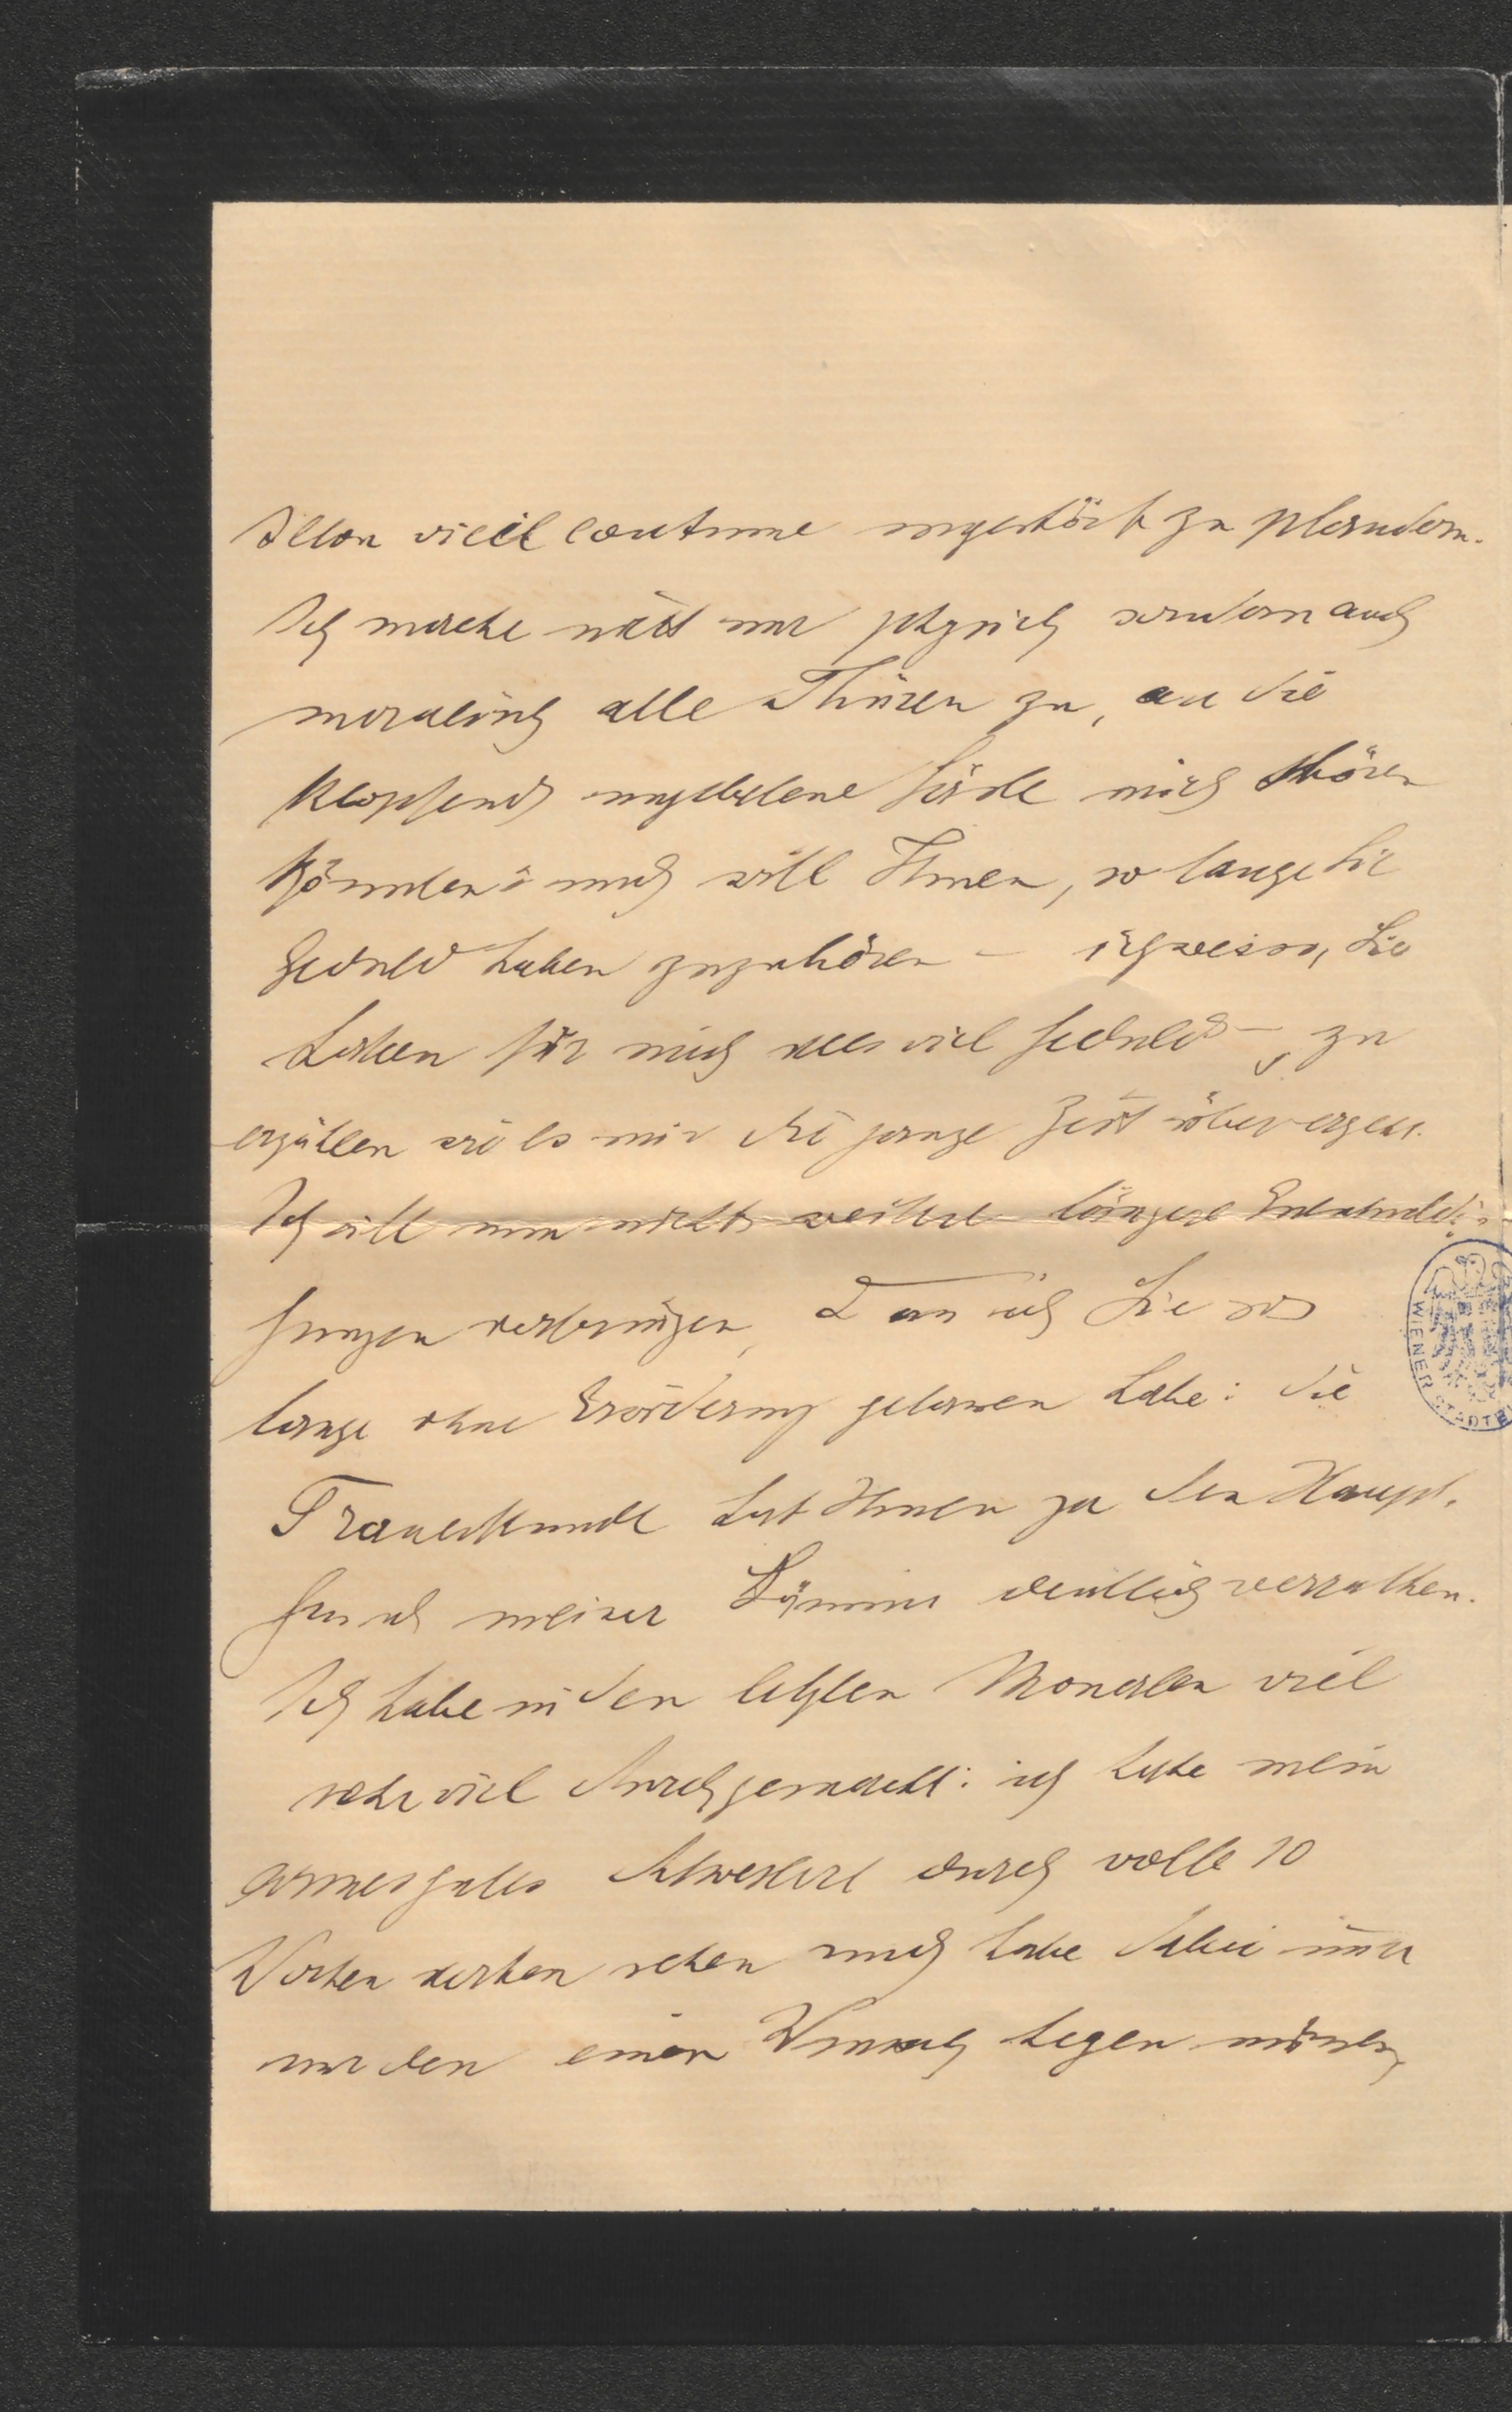 selon vieille coutume ungestört zu plaudern.
Ich mache nicht nur physisch sondern auch
moralisch alle Thüren zu, an die
klopfend ungebetene Gäste mich stören
könnten und will Ihnen, so lange Sie
Geduld haben zuzuhören – ich weiss, Sie
haben für mich sehr viel Geduld –, zu
erzählen wie es mir die ganze Zeit über ergeht.
Ich will nun nicht weitere längere Entschuldi-
gungen vorbringen, dass ich Sie so
lange ohne Erwiderung gelassen habe: die
Trauerkunde hat Ihnen ja den Haupt-
grund meiner deutlich verrathen.
Ich habe in den letzten Monaten viel
sehr viel durchgemacht: ich habe mein
armes gutes Schwesterl durch volle 10
Wochen sterben sehen und habe dabei immer
nur den einen Wunsch hegen müssen,
WIENER STADTB